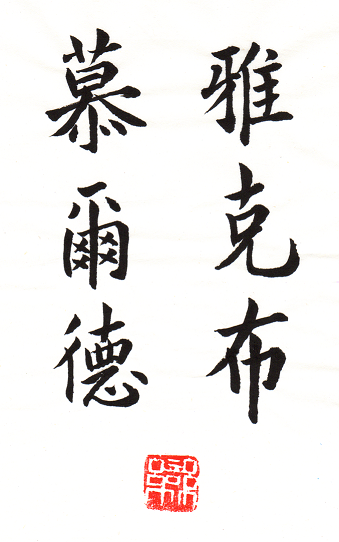 雅克布
慕爾德